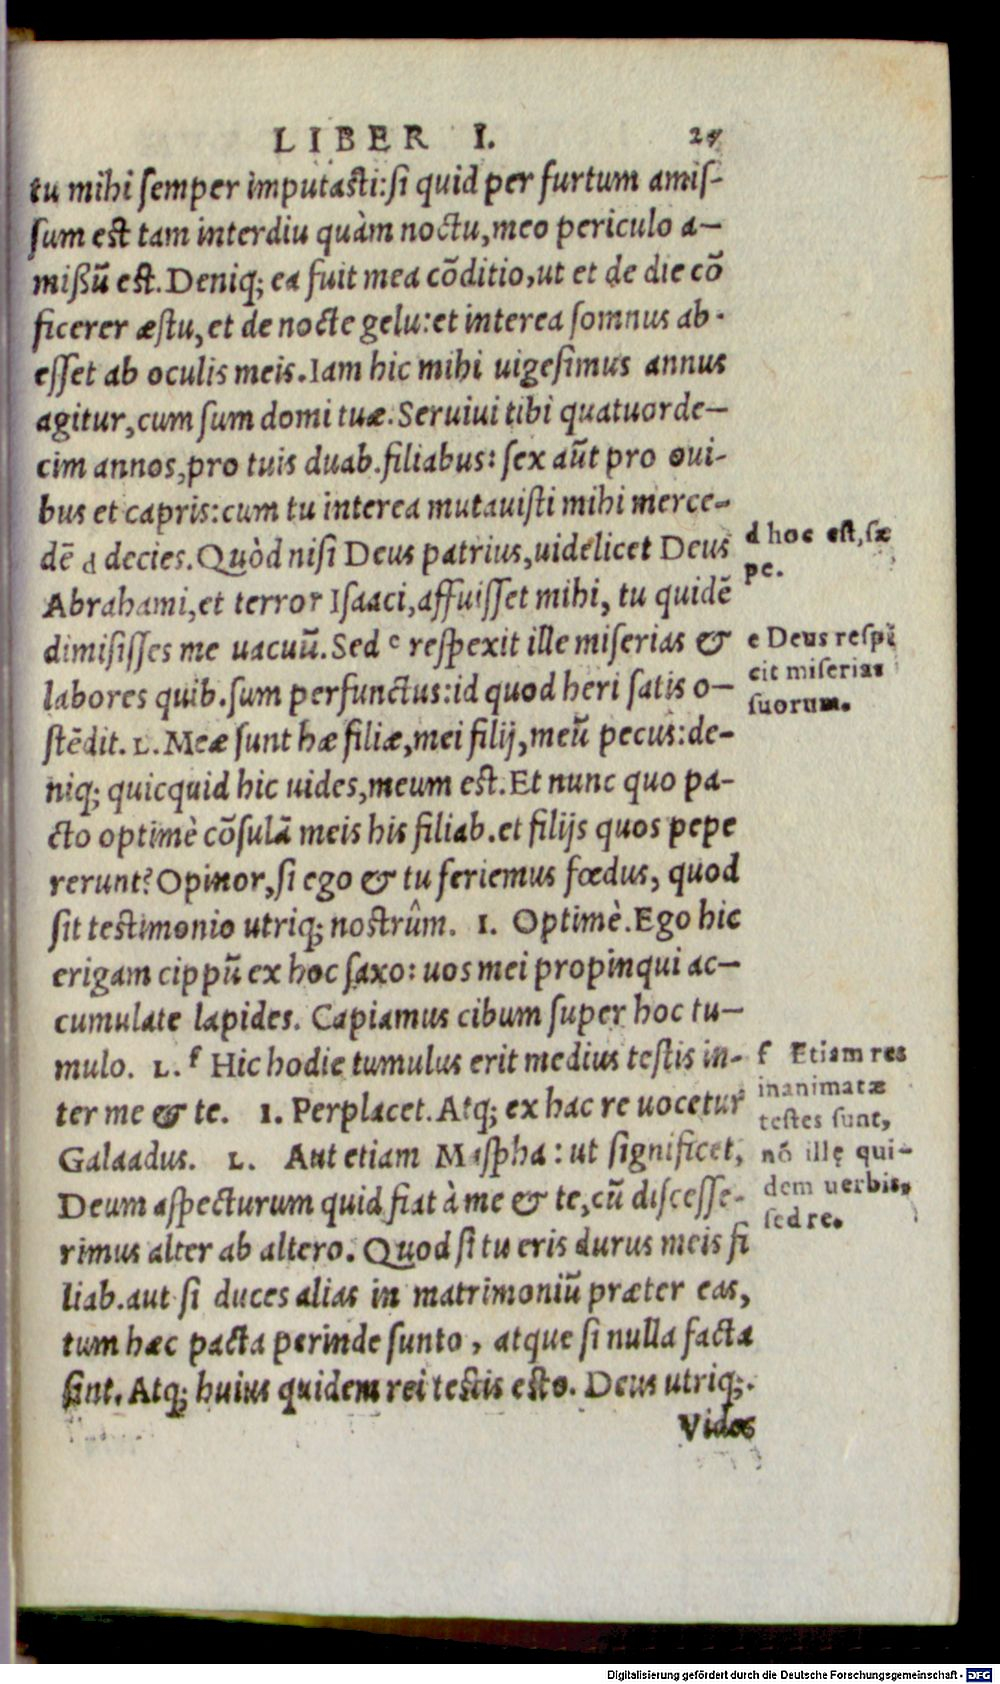 LIBER I.
tu mihi semper imputasti:si quid per furtum amis-
sum est tam interdiu quàm noctu,meo periculo a-
mißũ est.Deniq; ea fuit mea cõditio,ut et de die cõ
ficerer æstu,et de nocte gelu:et interea somnus ab-
esset ab oculis meis.Iam hic mihi uigesimus annus
agitur,cum sum domi tuæ.Seruiui tibi quatuorde-
cim annos,pro tuis duab.filiabus: sex aũt pro oui-
bus et capris:cum tu interea mutauisti mihi merce-
dẽ d decies.Quòd nisi Deus patrius,uidelicet Deus
Abrahami,et terror Isaaci,affuisset mihi, tu quidẽ
dimisisses me uacuũ.Sed e respexit ille miserias &
labores quib.sum perfunctus:id quod heri satis o-
stẽdit. L.Meæ sunt hæ filiæ,mei filij,meũ pecus:de-
niq; quicquid hic uides,meum est.Et nunc quo pa-
cto optimè cõsulã meis his filiab.et filijs quos pepe
rerunt? Opinor,si ego & tu feriemus fœdus, quod
sit testimonio utriq; nostrûm. I. Optimè.Ego hic
erigam cippũ ex hoc saxo: uos mei propinqui ac-
cumulate lapides. Capiamus cibum super hoc tu-
mulo. L. f Hic hodie tumulus erit medius testis in-
ter me & te. I. Perplacet.Atq; ex hac re uocetur
Galaadus. L. Aut etiam Maspha: ut significet,
Deum aspecturum quid fiat à me & te,cũ discesse-
rimus alter ab altero. Quod si tu eris durus meis fi
liab.aut si duces alias in matrimoniũ præter eas,
tum hæc pacta perinde sunto, atque si nulla facta
sint. Atq; huius quidem rei testis esto. Deus utriq;.
Vides
d hoc est,sæ
pe.
e Deus respi
cit miserias
suorum.
f Etiam res
inanimatæ
testes sunt,
nõ illę qui-
dem uerbis,
sed re.
Digitalisierung gefördert durch die Deutsche Forschungsgemeinschaft - DFG